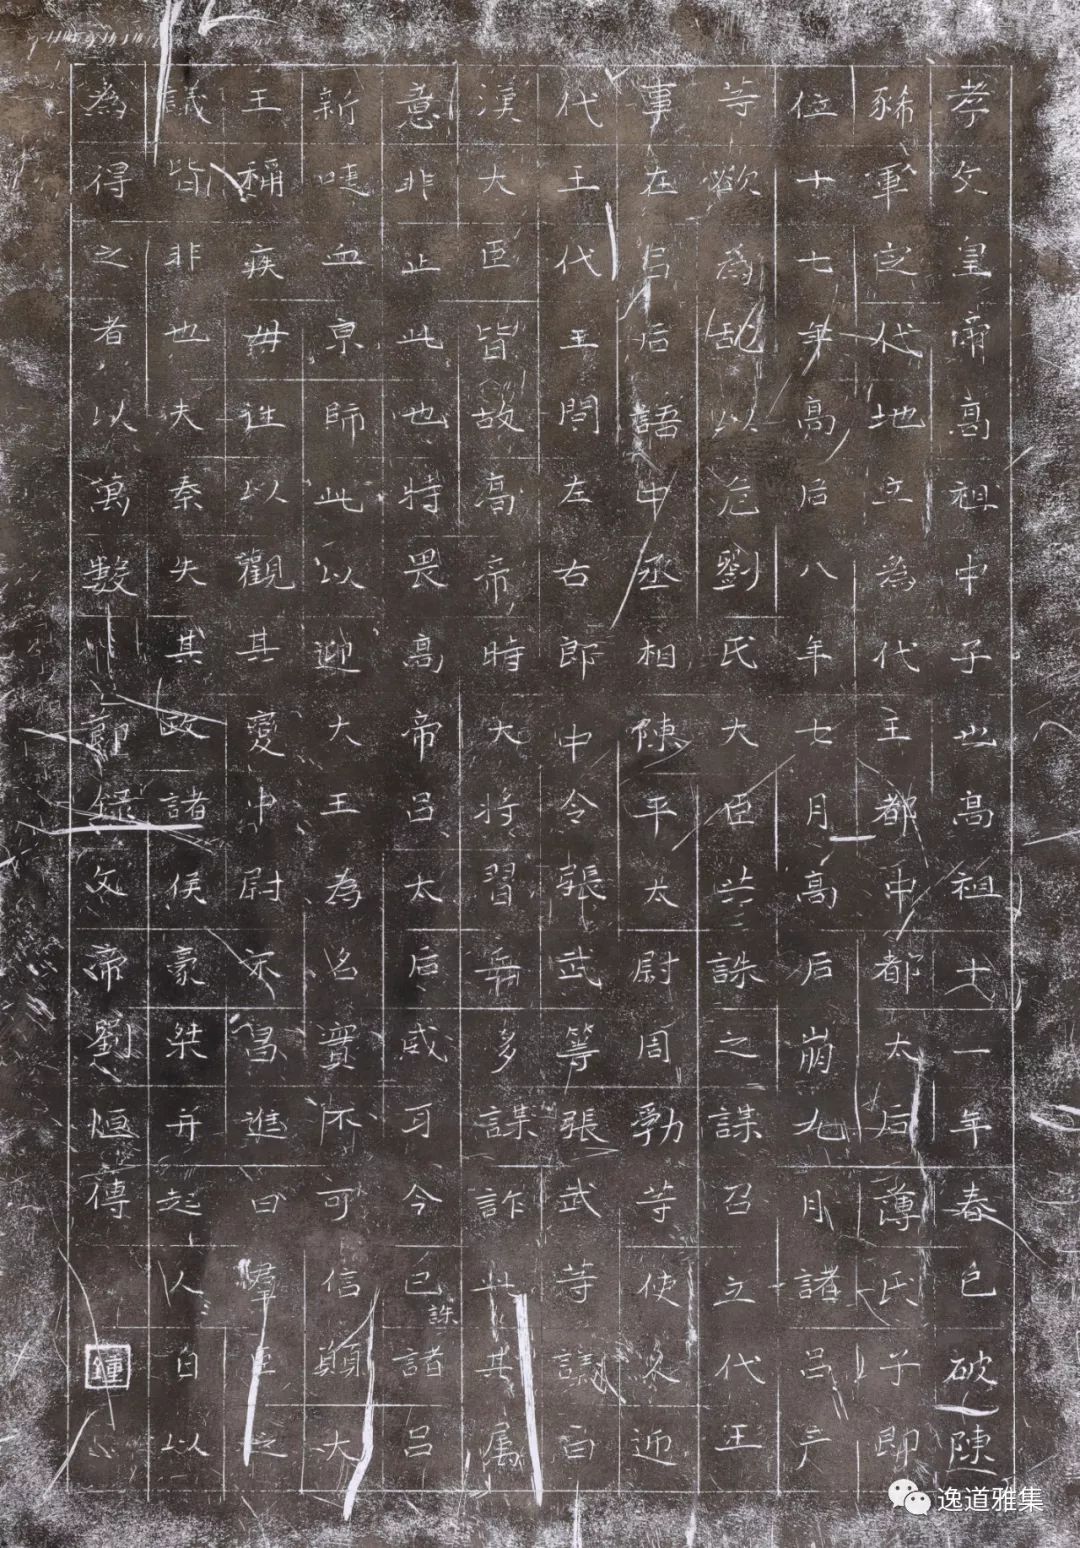 孝文皇帝高祖中子也高祖十一年春已破陳
豨軍定代地立為代王都中都太后薄氏子即
位十七年高后八年七月高后崩九月諸呂產
等欲為亂以危劉氏大臣共誅之謀召立代王
事在呂后語中丞相陳平太尉周勃等使迎
代王代王問左右郎中令張武等張武等議曰
漢大臣皆故高帝時大將習兵多謀詐此其屬
意非止此也特畏高帝呂太后威耳今已誅諸呂
新啑血京師此以迎大王為名實不可信願大
王稱疾毋往以觀其變中尉宋昌進曰羣臣之
議皆非也夫秦失其政諸侯豪桀并起人〻自以
為得之者以萬數節錄文帝劉恒傳
鍾
逸道雅集